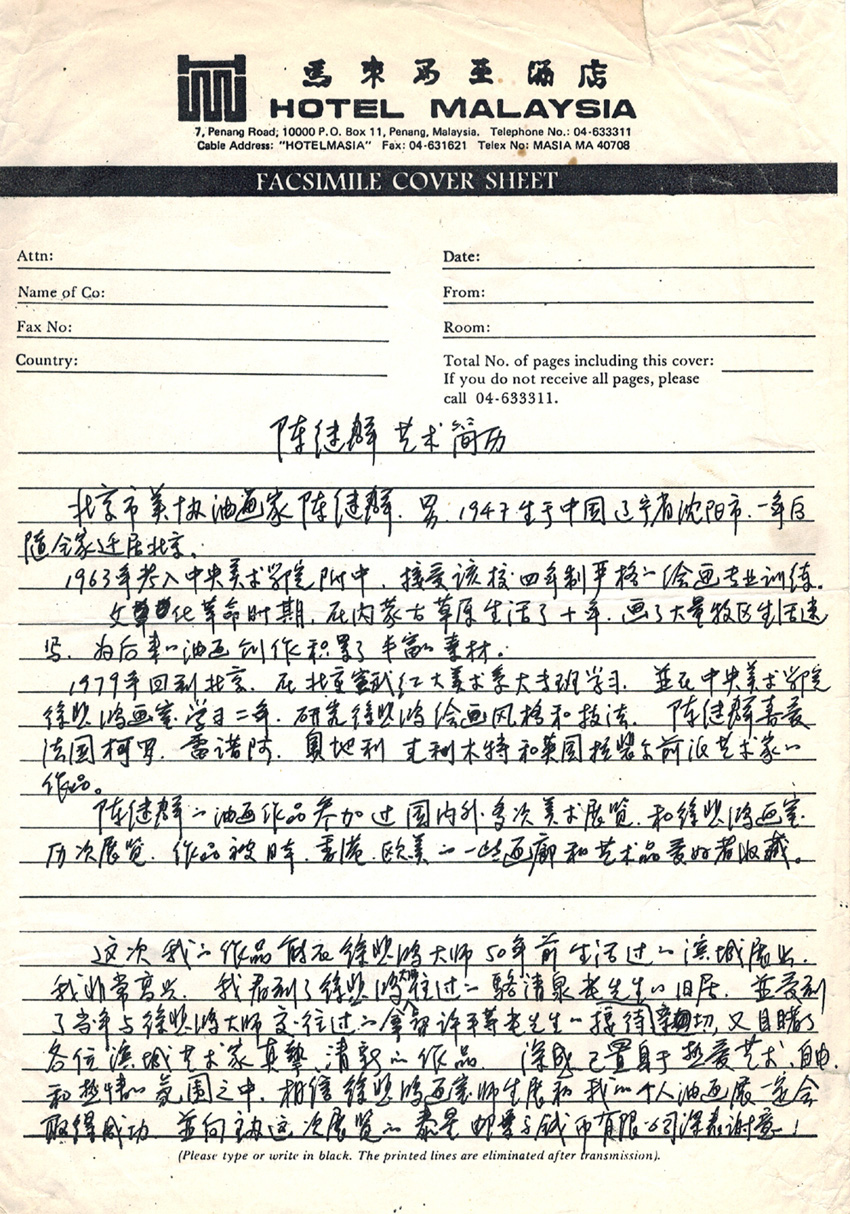 馬来西亚酒店
HOTEL MALAYSIA
7, Penang Road; 10000 P.O. Box 11, Penang, Malaysia. Telephone No.: 04-633311
Cable Address: "HOTELMASIA" Fax: 04-631621 Telex No: MASIA MA 40708
FACSIMILE COVER SHEET
Attn:
Date:
Name of Co:
From:
Fax No:
Room:
Country:
Total No. of pages including this cover:
If you do not receive all pages, please
call 04-633311.
陈继群艺术简历
北京市美协油画家陈继群.男.1947生于中国辽宁省沈阳市.一年后
随全家迁居北京.
1963年考入中央美术学院附中.接受该校四年制严格的绘画专业训练.
文化革命时期.在内蒙古草原生活了十年.画了大量牧区生活速
写.为后来的油画创作积累了丰富的素材.
1979年回到北京.在北京宣武红大美术系大专班学习.並在中央美术学院
徐悲鸿画室学习二年.研究徐悲鸿绘画风格和技法.陈继群喜爱
法国柯罗.雷诺阿.奥地利克利木特和英国拉斐尔前派艺术家的
作品。
陈继群的油画作品参加过国内外多次美术展览.和徐悲鸿画室
历次展览.作品被日本.香港.欧美的一些画廊和艺术品爱好者收藏。
这次我的作品能在徐悲鸿大师50年前生活过的滨城展出.
我非常高兴.我看到了徐悲鸿大师住过的骆清泉老先生的旧居.並受到
了当年与徐悲鸿大师交往过的许平等老先生的接待亲切.又目睹了
各位滨城艺术家真摯、清新的作品.深感已置身于热爱艺术、自由.
和热情的氛围之中.相信徐悲鸿画室师生展和我的个人油画展一定会
取得成功.並向主办这次展览的泰星邮票与钱币有限公司深表谢意!
(Please type or write in black. The printed lines are eliminated after transmission).